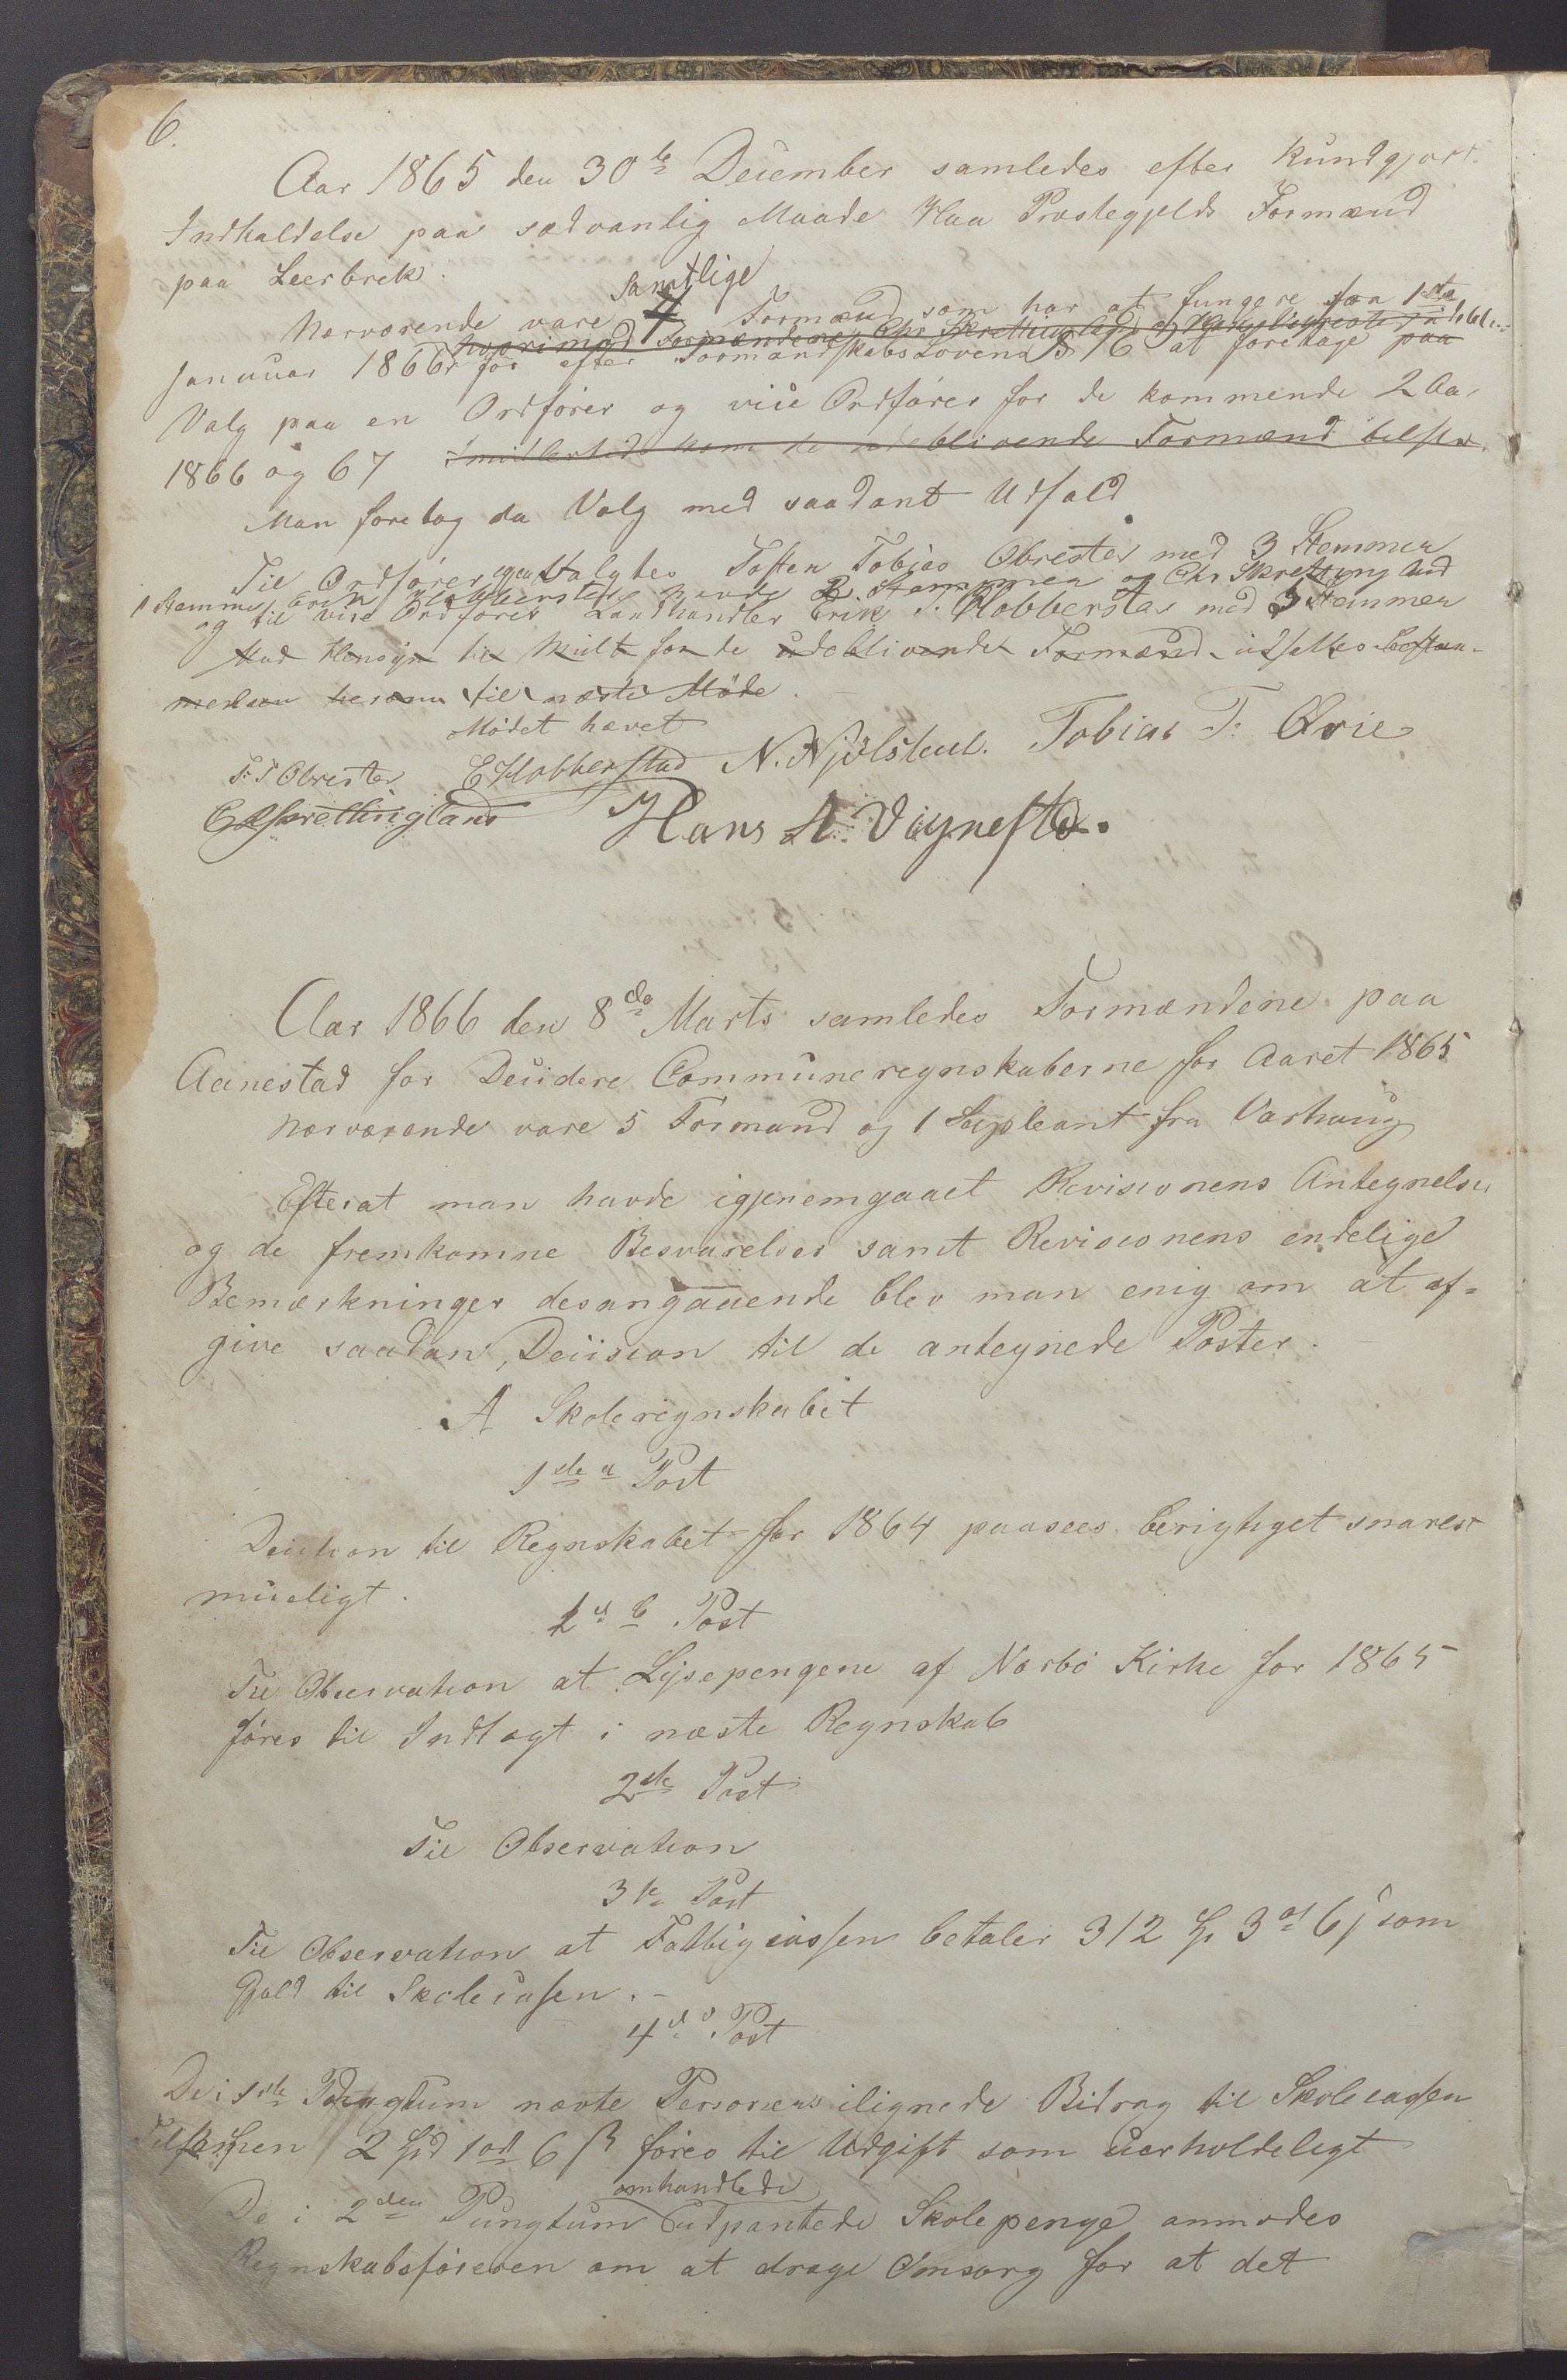 6.
Aar 1865 den 30te December samledes efter kundgjort
Indkaldelse paa sædvanlig Maade Haa Præstegjelds Formænd
paa Leerbrek.
samtlige
Nærværende vare 4 Formænd som har at fungere fra 1ste
hvorimod Formændene Chr Skrettingland og
Januar 1866 for efter Formandskabs Lovens § 16 at foretage paa
Valg paa en Ordfører og vice Ordfører for de kommende 2 Aar
1866 og 67 imidlertid kom de udeblivende Formænd tilste.
Man foretog da Valg med saadant Udfald
Til Ordfører valgtes Tosten Tobias Obrestad med 3 Stemmer
1 Stemme Erik Hobberstad havde 2 Stemmer og Chr Skrettingland
og til vice Ordfører Landhandler Erik T. Hobberstad med 3 Stemmer
Mad Hensyn til Mult for de udeblivende Formænd udsættes bestem-
melsen til næste Møde.
Mødet hævet
T. T Obrestad E Hobberstad N. Njølstad. Tobias T. Qvie
C Skrettingland Hans A. Vigrestad.
Aar 1866 den 8de Marts samledes Formændene paa
Aanestad for Decidere Communeregnskaberne for Aaret 1865
Nærværende vare 5 Formænd og 1 Supleant fra Varhaug
Efterat man havde igjenemgaaet Revisionens Antegnelser
og de fremkomne Besvarelser samt Revisionens endelige
Bemærkninger desangaaende blev man enig om at af-
give saadan Decision til de antegnede Poster.
A Skoleregnskabet
1ste a Post
Decision til Regnskabet for 1864 paasees berigtiget snarest
mueligt.
1ste b Post
Til Observation at Lysepengene af Nærbø Kirke for 1865
føres til Indtægt i næste Regnskab
2den Post
Til Observation
3de Post
Til Observation at Fattigcassen betaler 312 Sp 3 ort 6 ß som
Gjæld til Skolecassen.
4de Post
De i 1ste Pungtum nævte Personers ilignede Bidrag til Skolecassen
Tilsammen 2 Spd 1 ort 6 ß føres til Udgift som uerholdeligt
omhandlede
De i 2den Pungtum udpantede Skolepenge anmodes
Regnskabsføreren om at drage Omsorg for at det